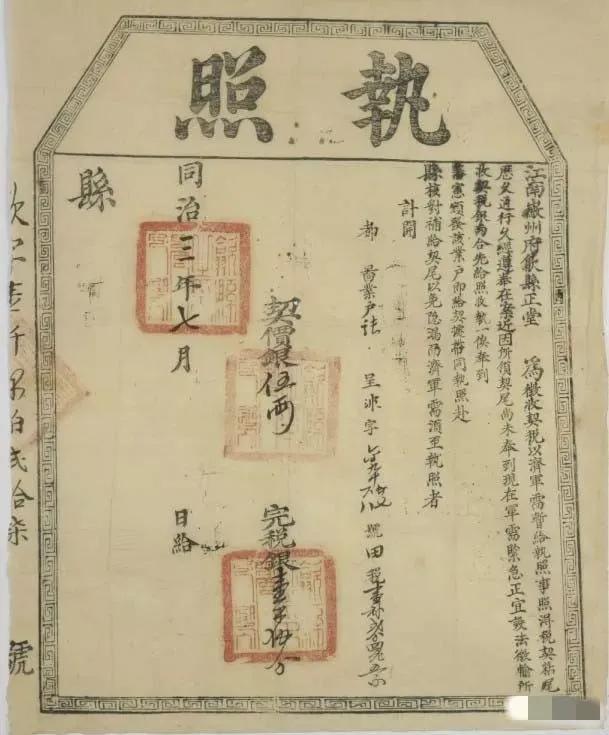 執照
江南徽州府歙縣正堂 為徵收契稅以濟軍需暫給執照事照得稅契粘尾
歷久通行久經遵奉在案近因所領契尾尚未奉到現在軍需緊急正宜設法徵輸所
收契稅銀兩合先給照收執一俟奉到
藩憲頒發該業户即給契據帶同執照赴
縣核對補給契尾以免隱漏而濟軍需須至執照者
計開
都 啚業户 呈 字 號田稅
契價銀伍兩 完稅銀壹 分
同治三年七月 日給
縣
字壹千 百弍拾柒 號